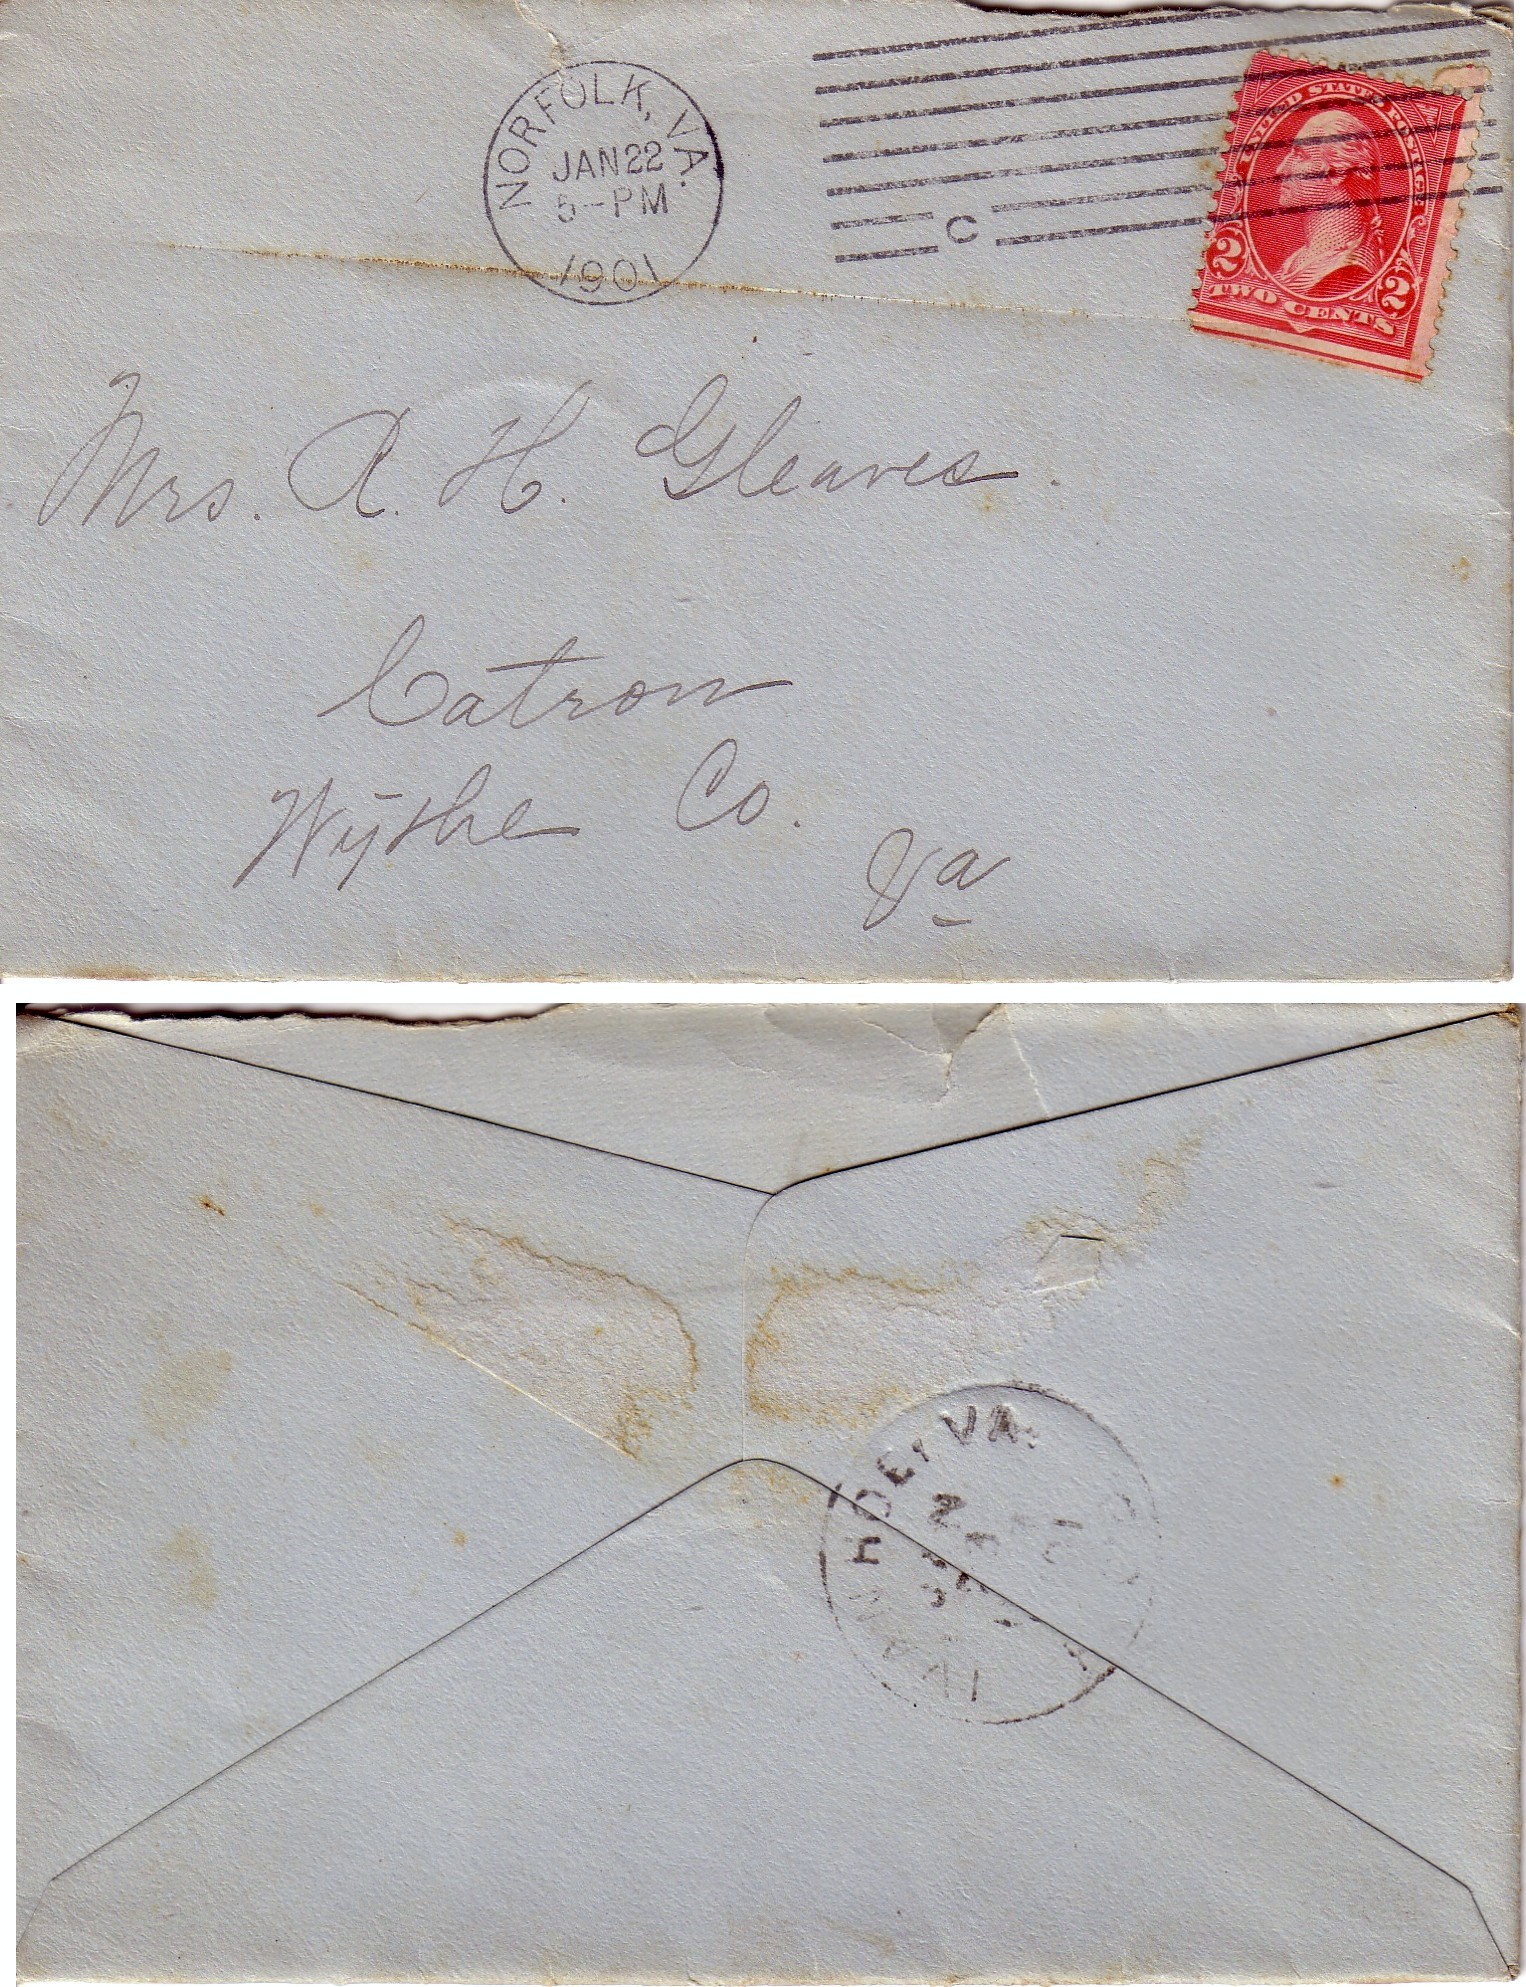 NORFOLK, VA.
JAN 22
5-PM
1901
C
UNITED STATES POSTAGE
2 2
TWO CENTS
Mrs. A. H. Gleaves.
Catron
Wythe Co.
Va
VA.